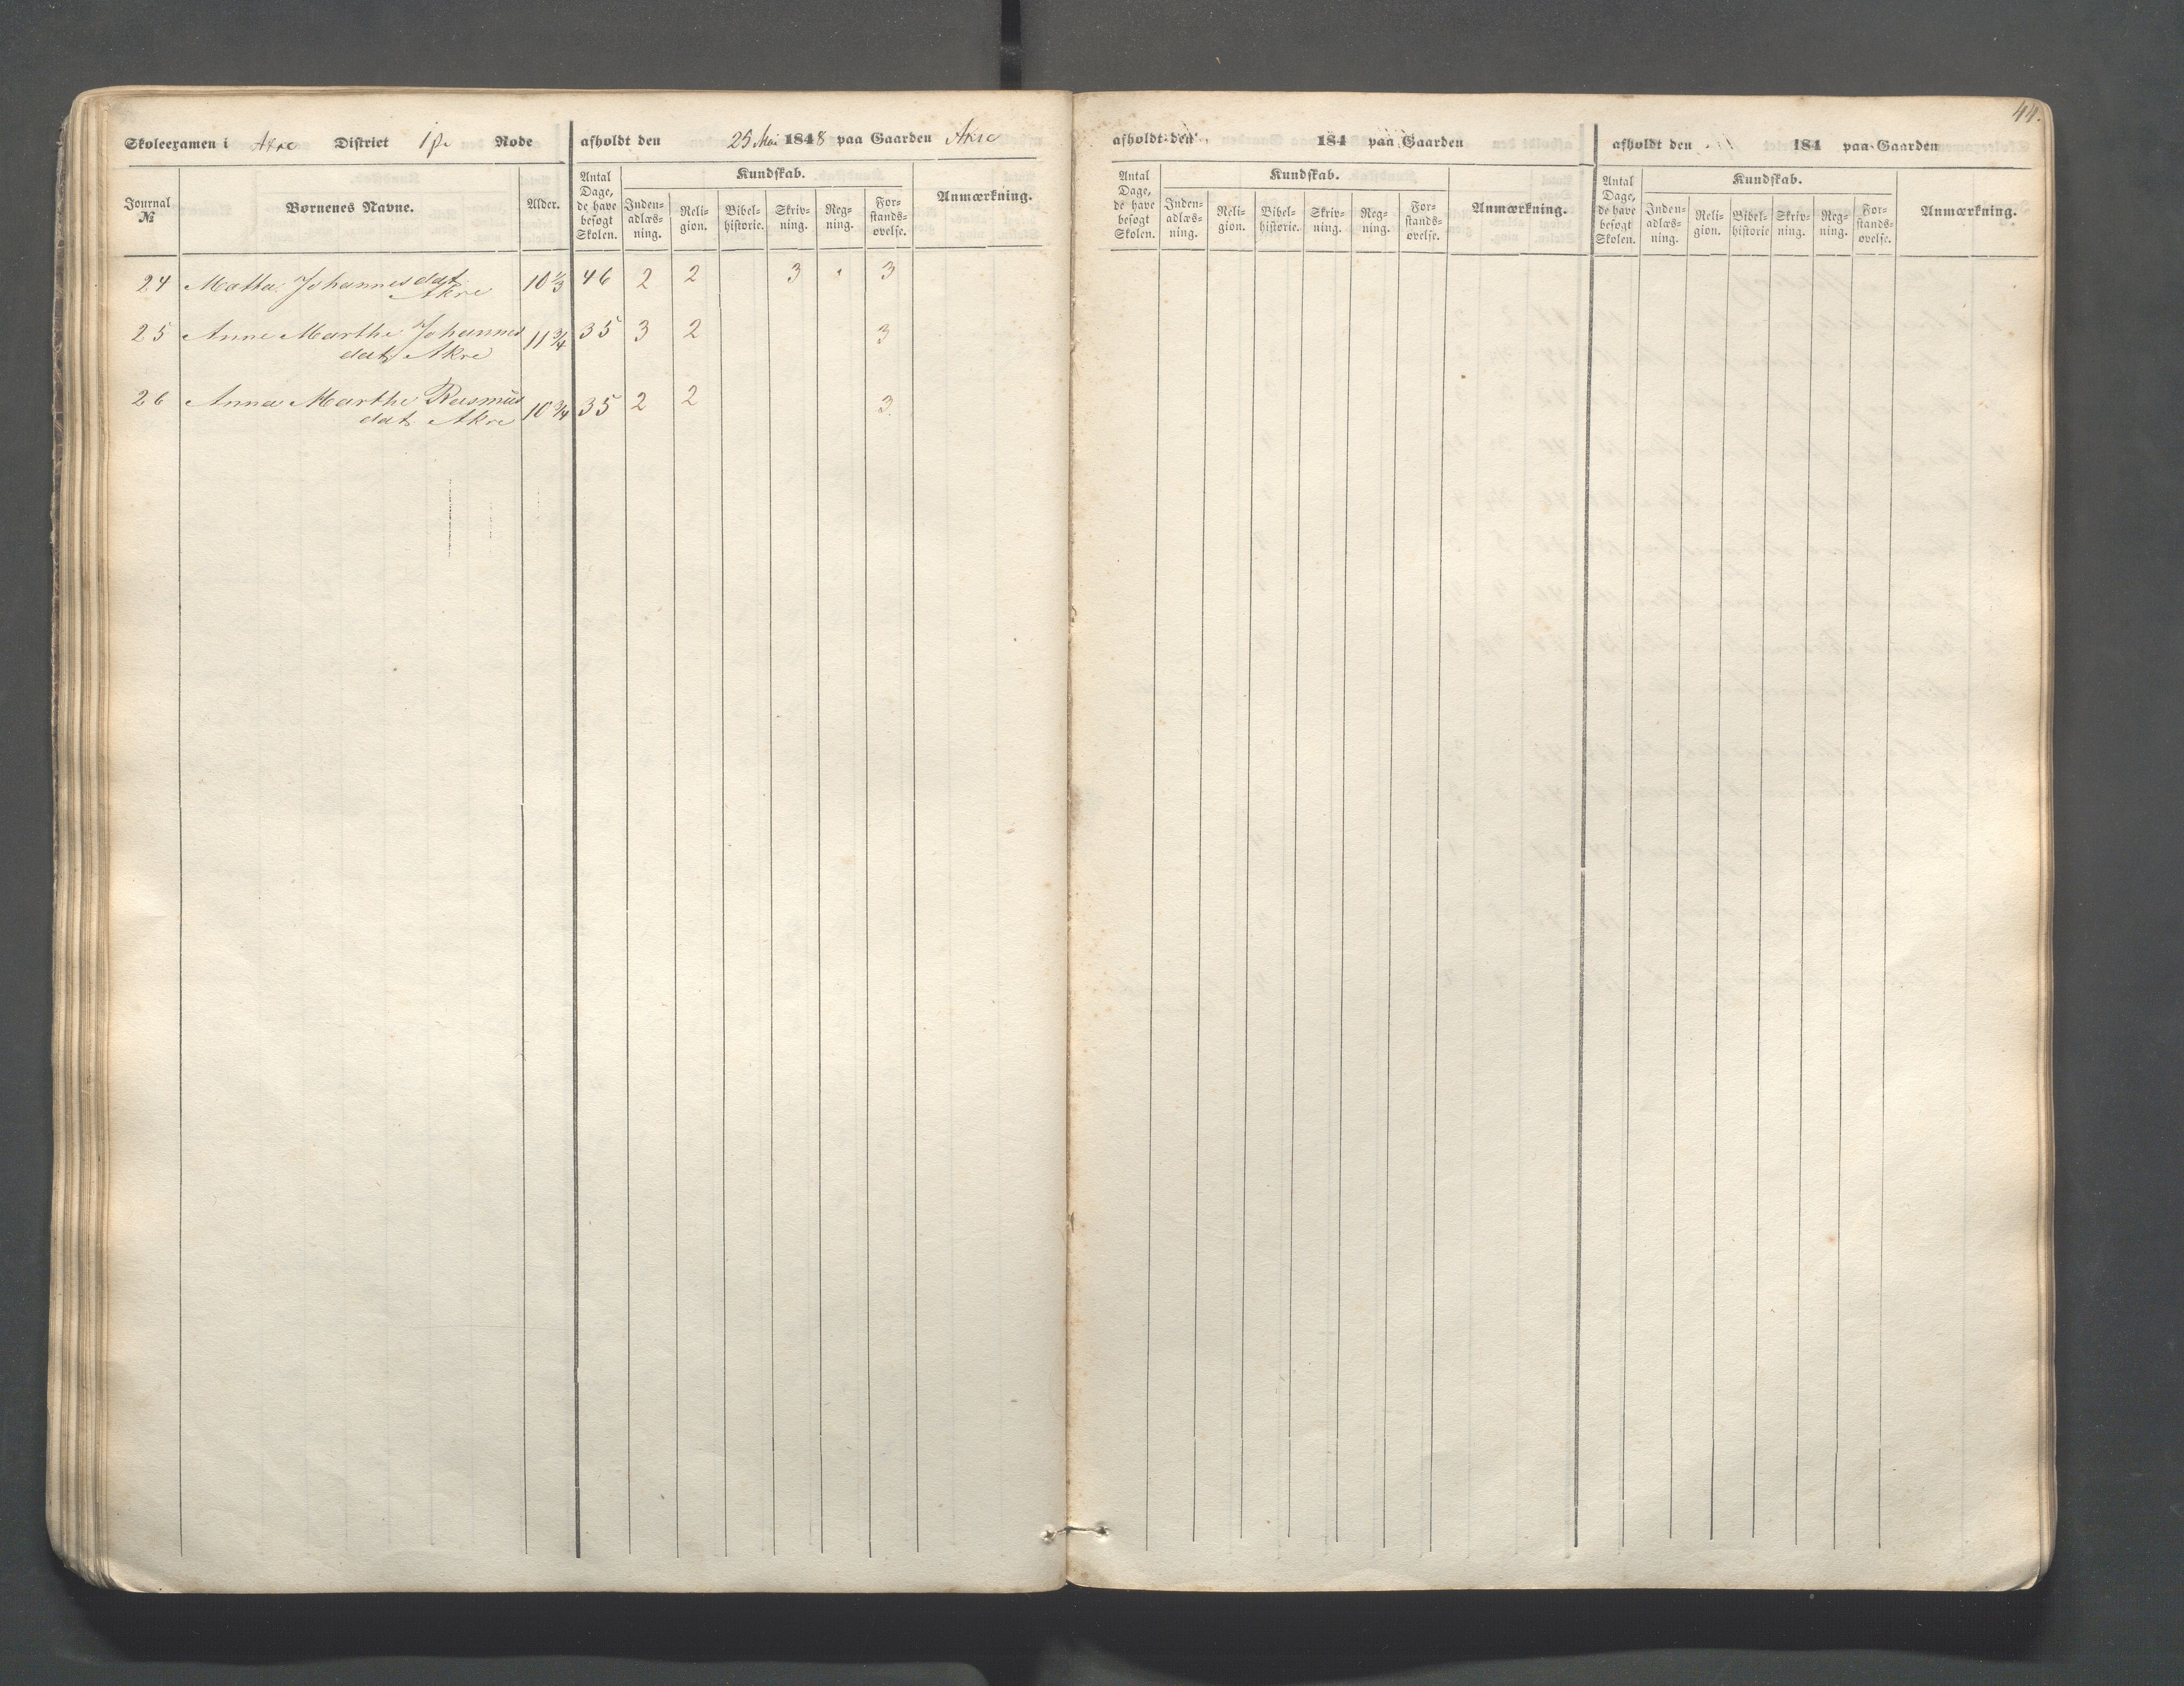 44.
Skoleexamen i Akre District 1ste Rode afholdt den 25 Mai 1848 paa Gaarden Akre
Journal № Børnenes Navne. Alder. Antal Dage, de have besøgt Skolen. Kundskab. Inden-adlæs-ning. Reli-gion. Bibel-historie. Skriv-ning. Reg-ning. For-stands-øvelse. Anmærkning.
24 Matha Johannesdat 10⅓ 46 2 2 3 3
Akre
25 Anne Marthe Johannes 11¾ 35 3 2 3
dat Akre
26 Anna Marthe Rasmus 10¾ 35 2 2 3.
dat Akre
afholdt den 184 paa Gaarden
Antal Dage, de have besøgt Skolen. Kundskab. Inden-adlæs-ning. Reli-gion. Bibel-historie. Skriv-ning. Reg-ning. For-stands-øvelse. Anmærkning.
afholdt den 184 paa Gaarden
Antal Dage, de have besøgt Skolen. Kundskab. Inden-adlæs-ning. Reli-gion. Bibel-historie Skriv-ning. Reg-ning. For-stands-øvelse. Anmærkning.